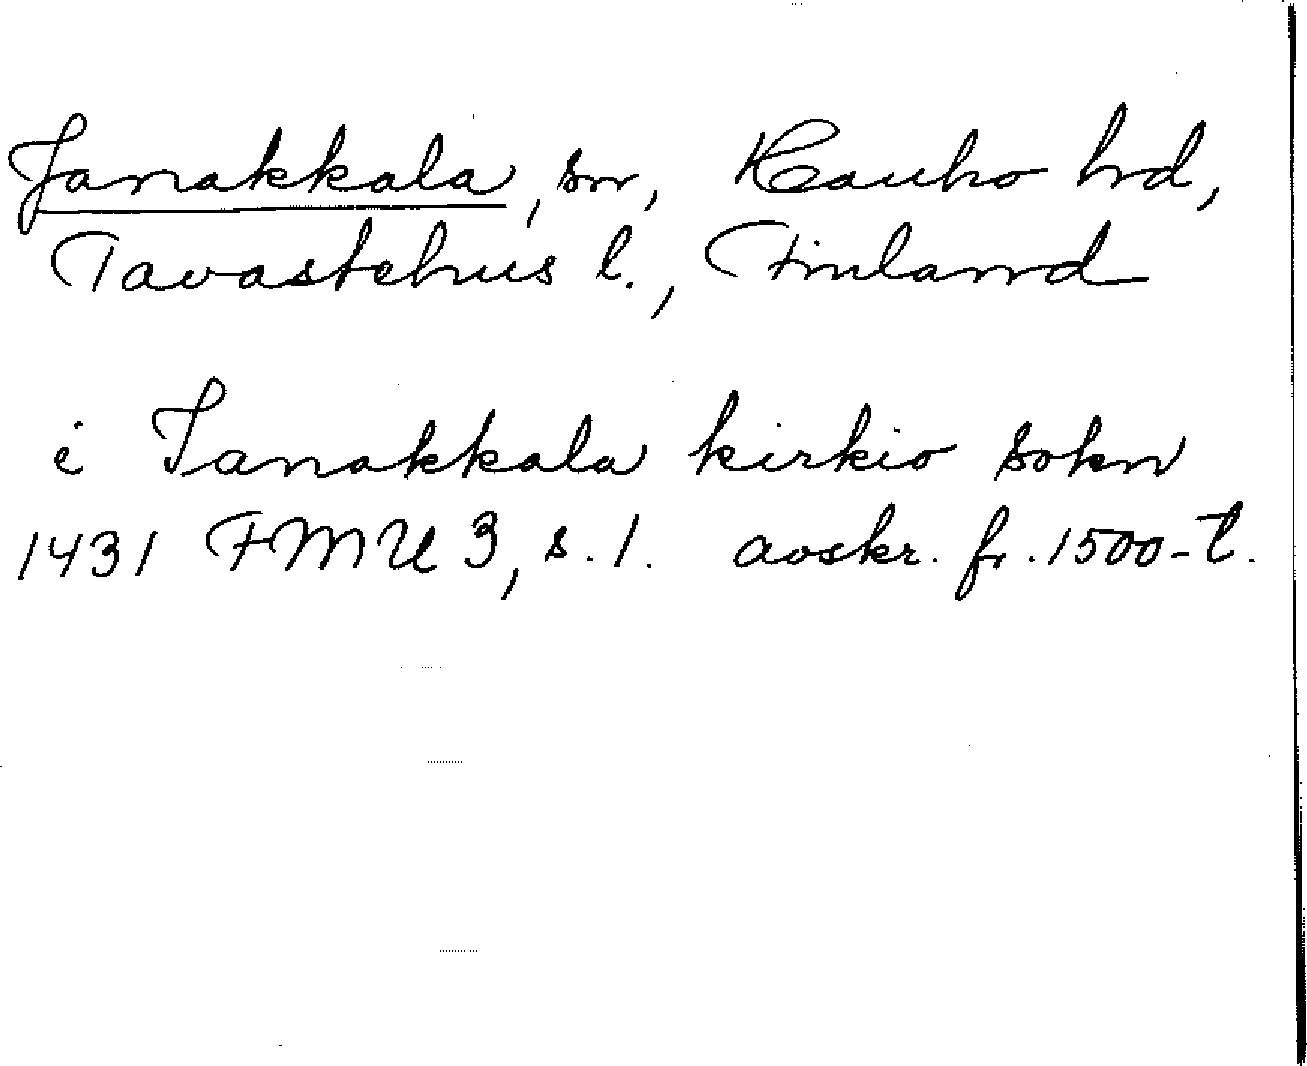 Janakkala, sn, Hauho hd,
Tavastehus l., Finland
i Janakkala kirkio sokn
1431 FMU 3, s. 1. avskr. fr. 1500-t.